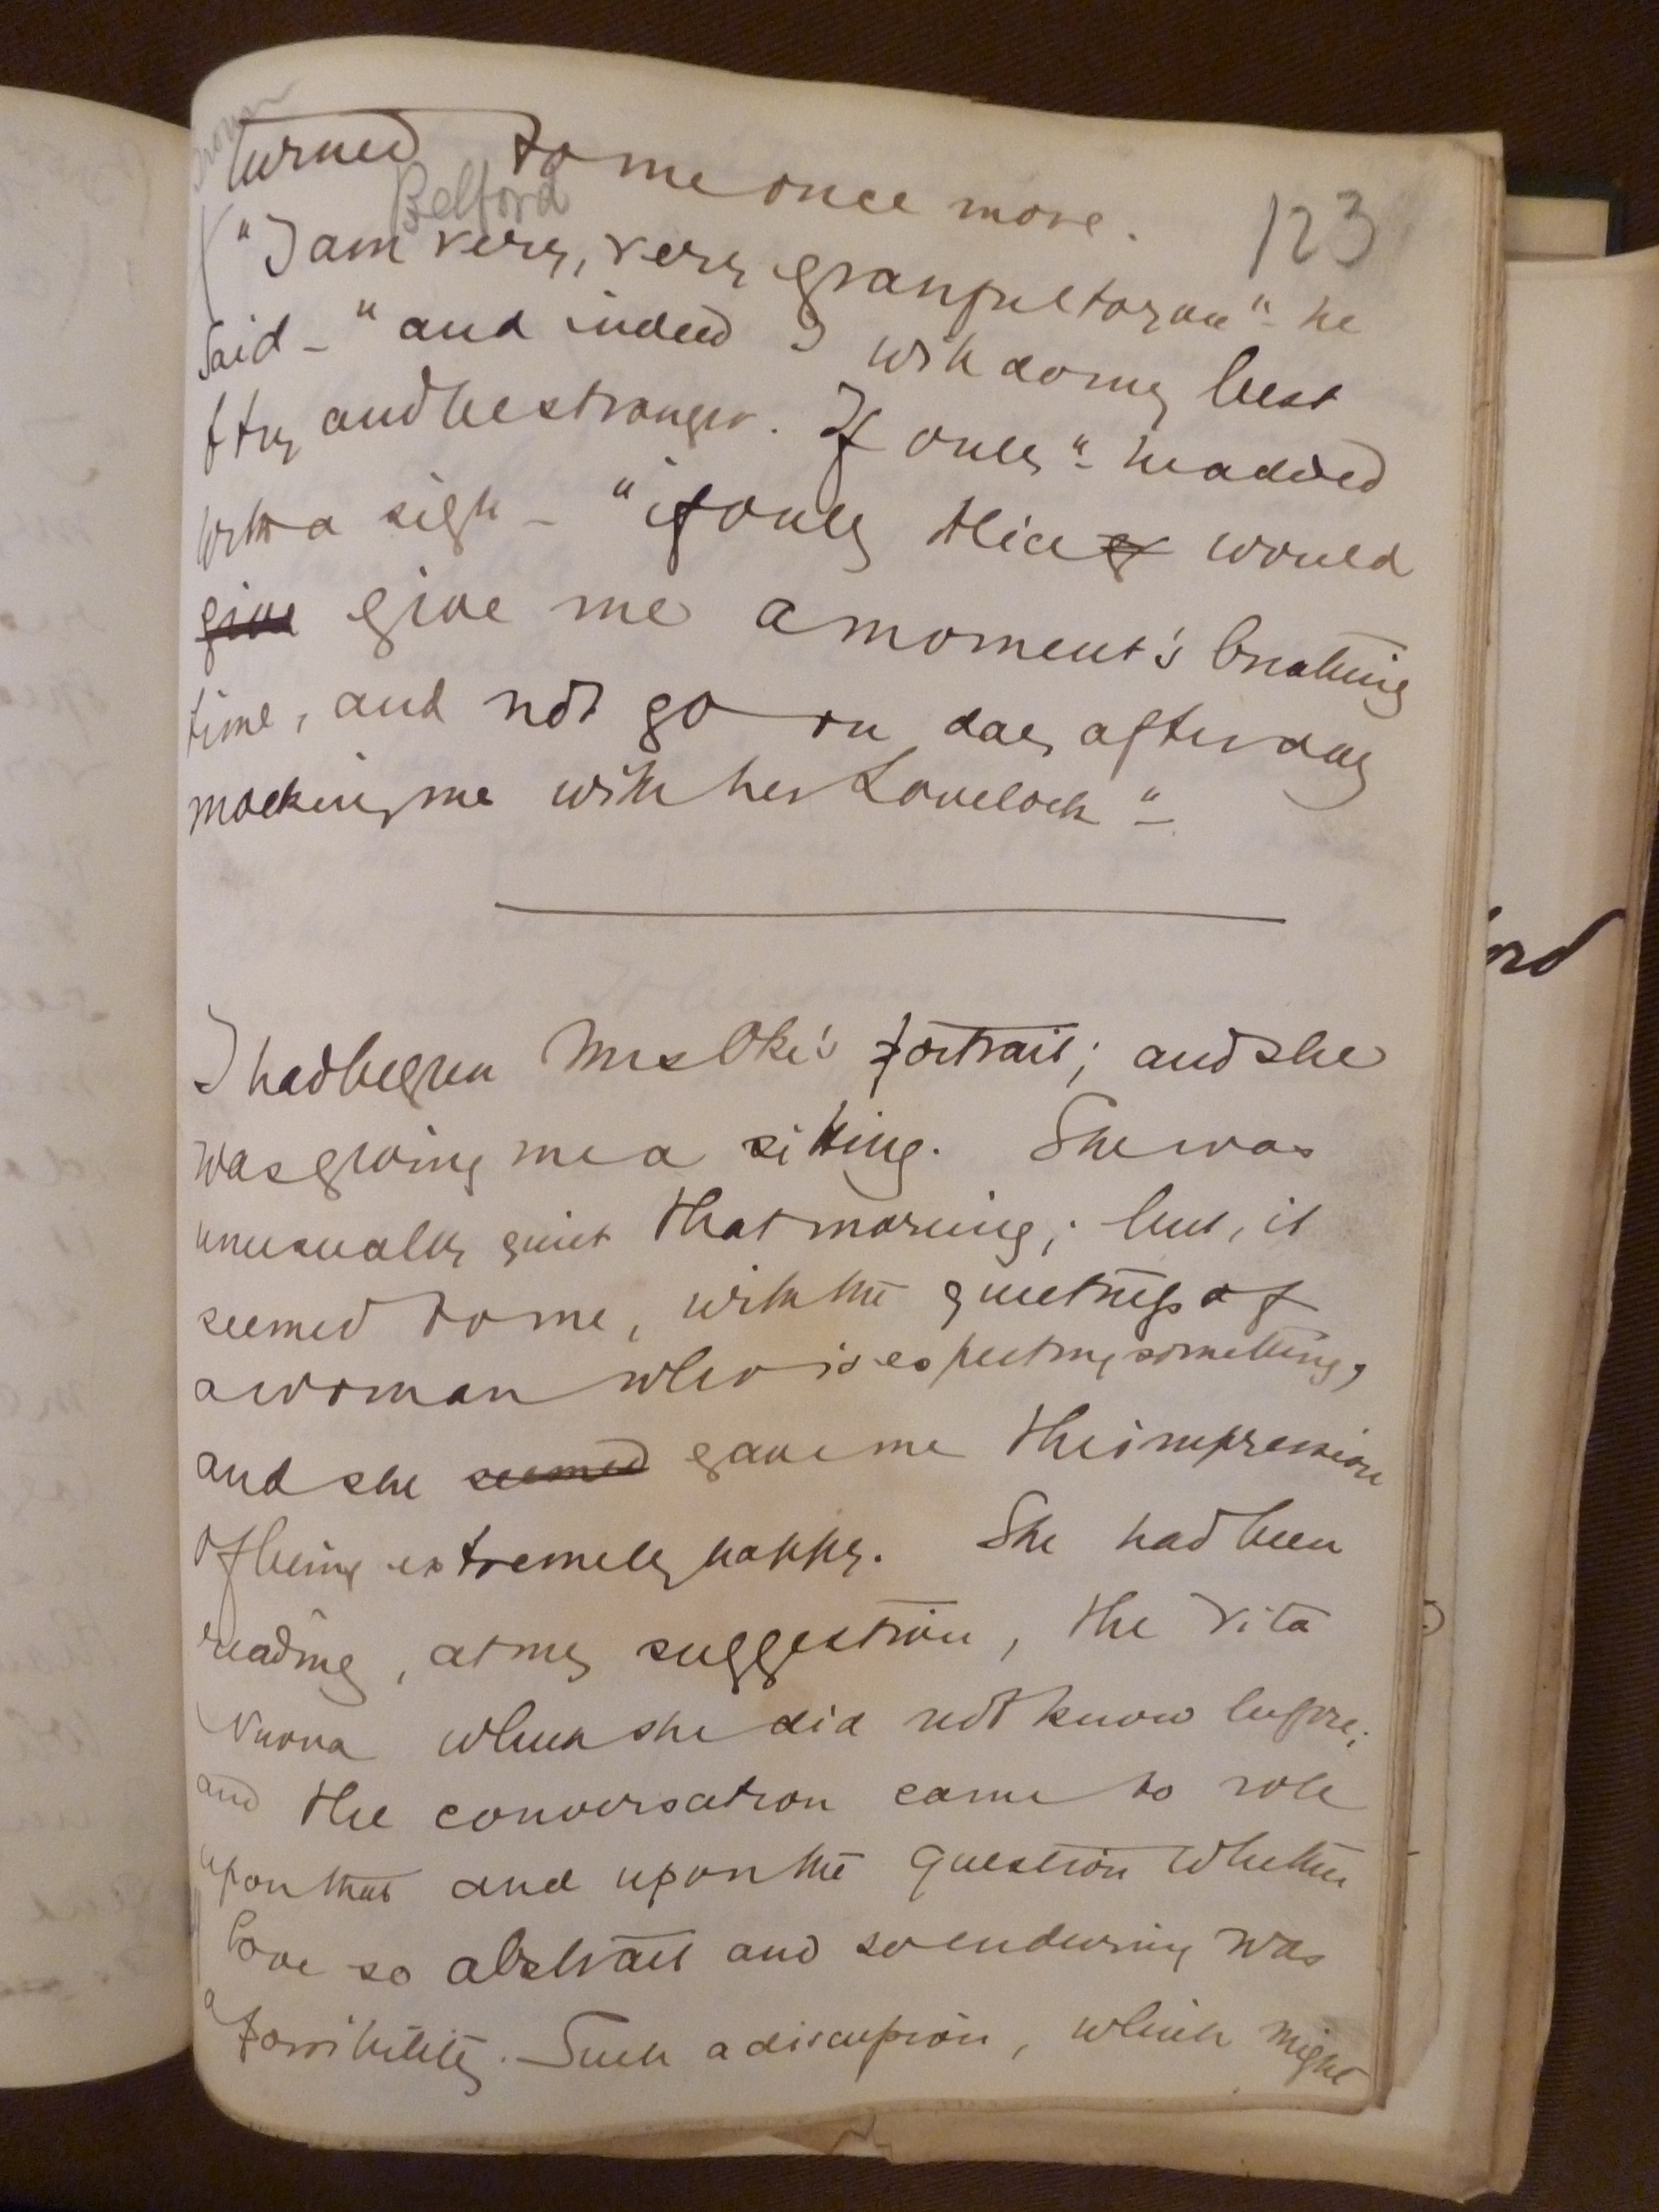 turned to me once more.
Belford
123
"I am very, very grateful to you" - he
said - "and indeed I will do my best
to try and be stronger. If only" - he added
with a sigh - "if only Alice would
give give me a moment's breathing
time, and not go on day after day
mocking me with her Lovelock" -
I had begun Mrs Oke's portrait; and she
was giving me a sitting. She was
unusually quiet that morning; but, it
seemed to me, with the quietness of
a woman who is expecting something,
and she seemed gave me the impression
of being extremely happy. She had been
reading, at my suggestion, the Vita
Nuova which she did not know before;
and the conversation came to role
upon that and upon the question whether
love so abstract and so enduring was
a possibility. Such a discussion, which might